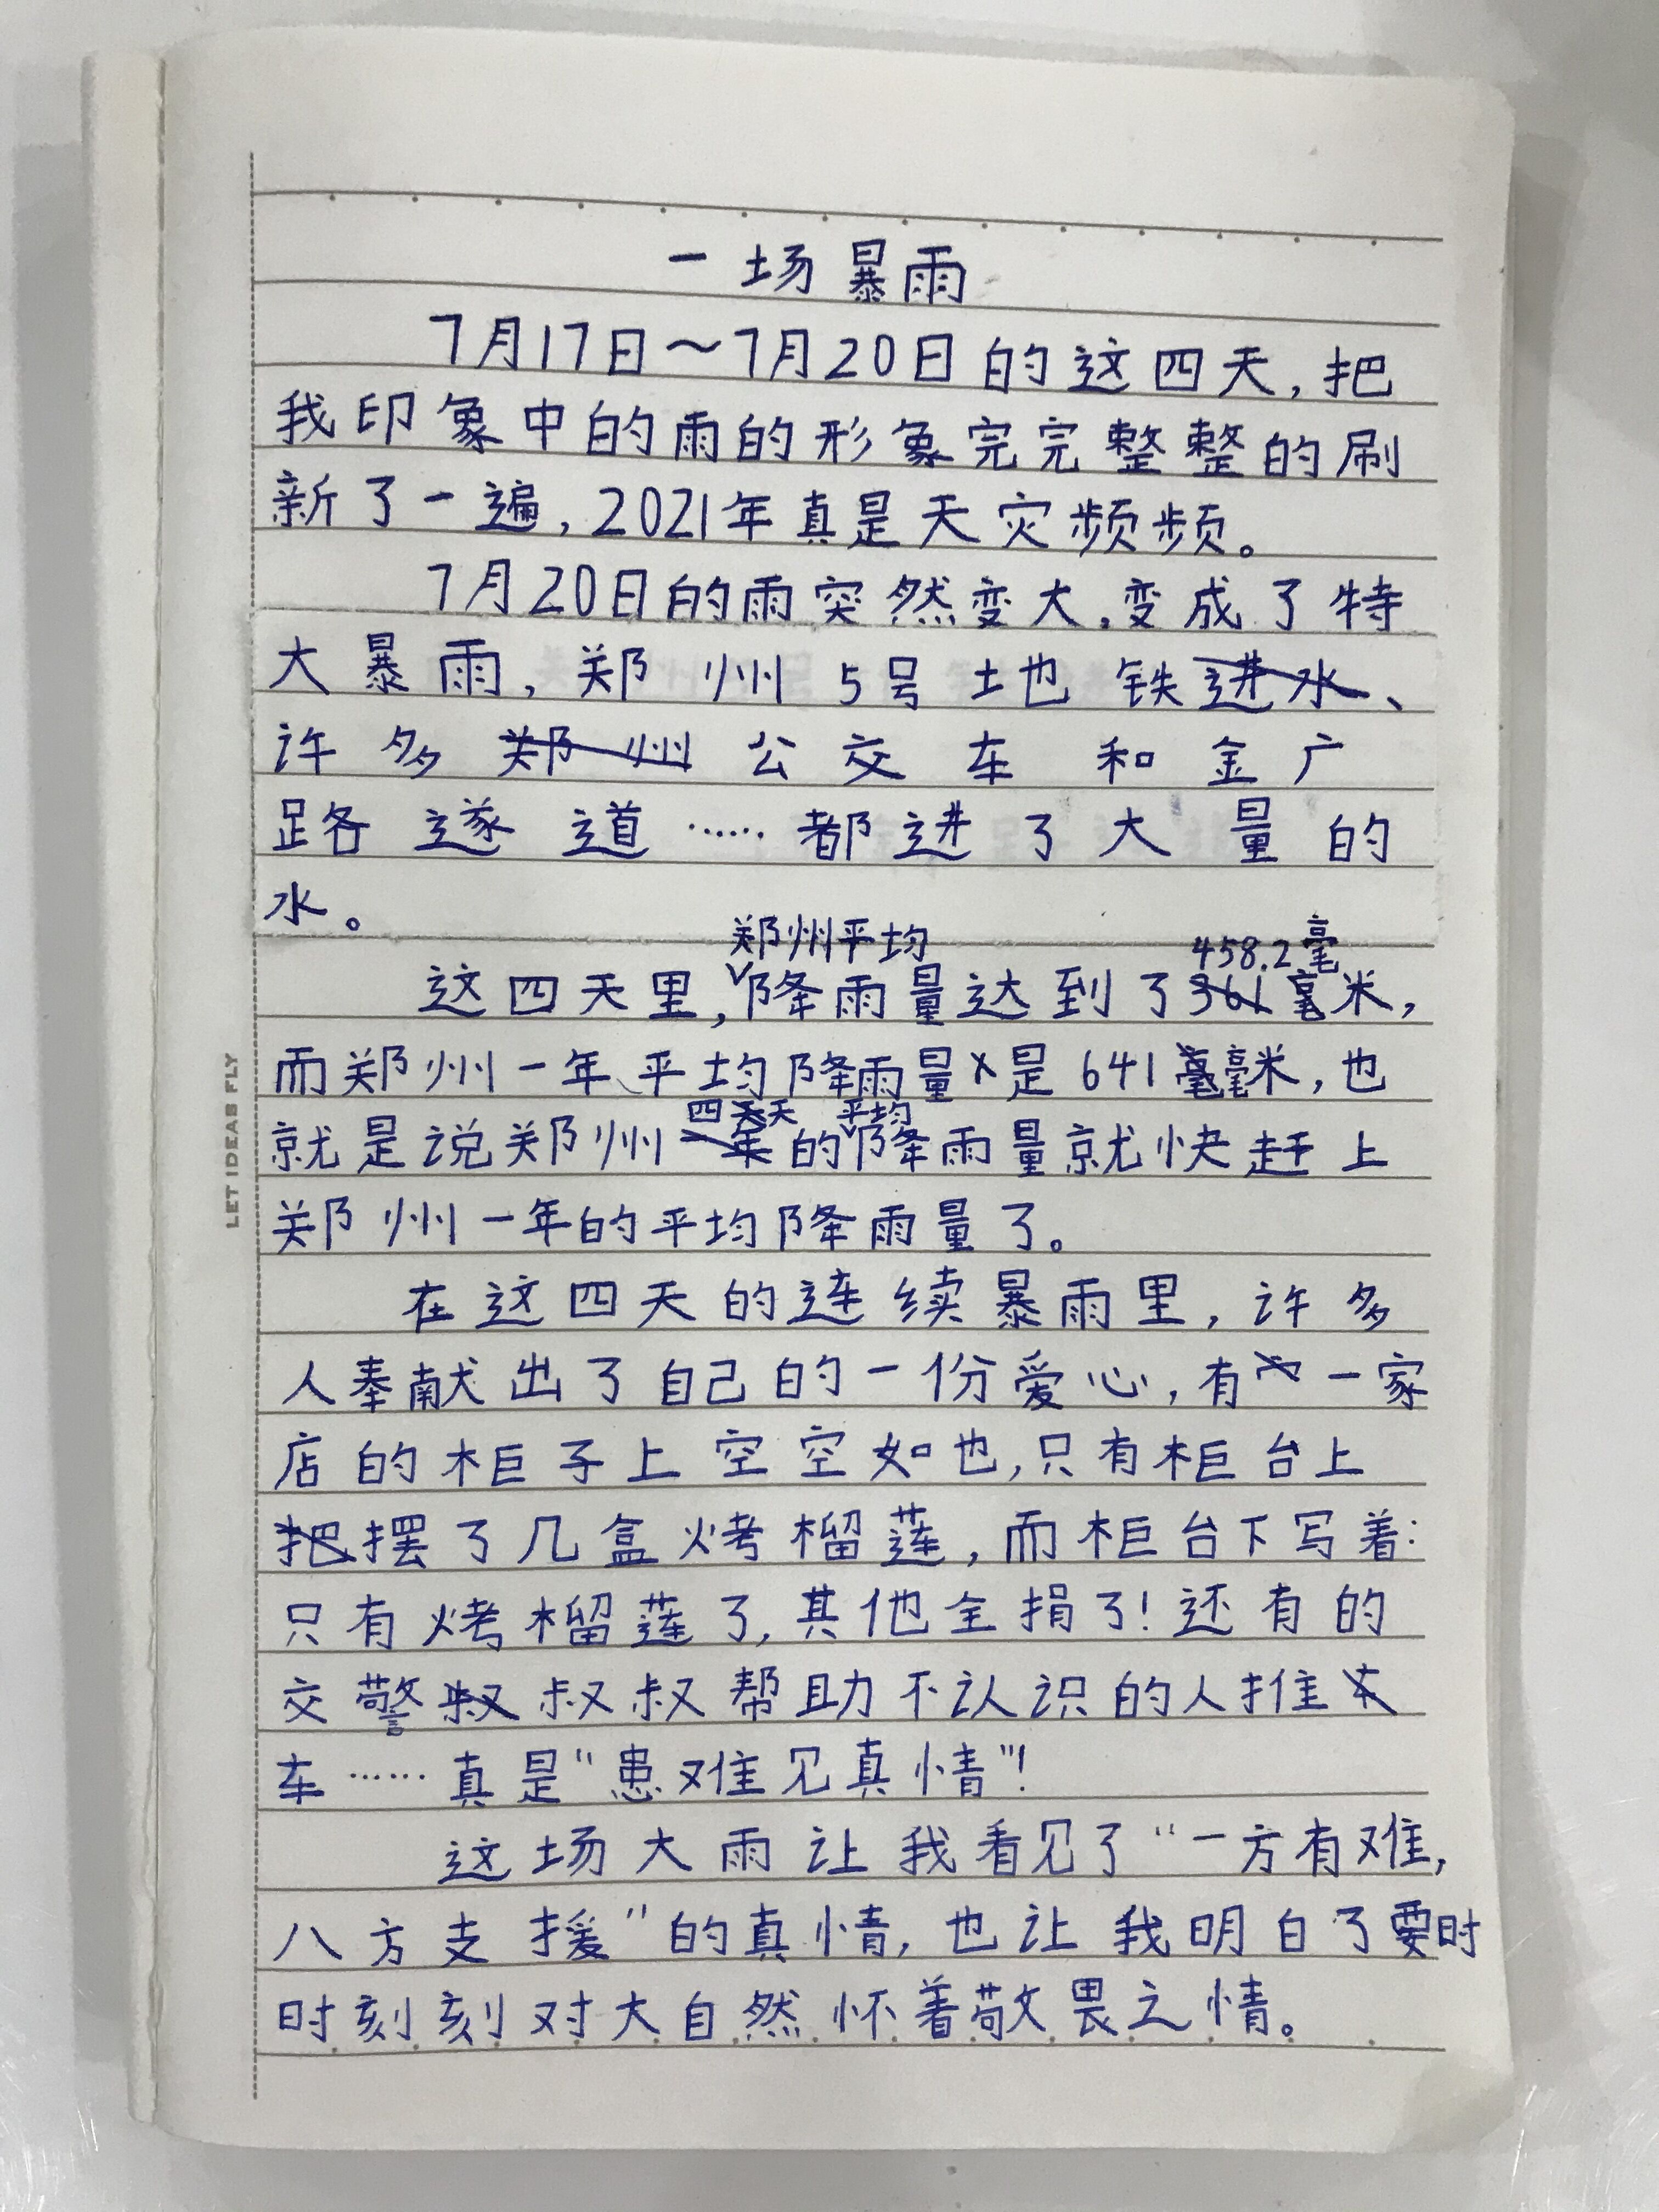 一场暴雨
7月17日～7月20日的这四天，把
我印象中的雨的形象完完整整的刷
新了一遍，2021年真是天灾频频。
7月20日的雨突然变大，变成了特
大暴雨，郑州5号地铁进水、
许多郑州公交车和金广
路遂道……都进了大量的
水。
郑州平均 458.2毫
这四天里，降雨量达到了361毫米，
而郑州一年平均降雨量是641毫米，也
四天 平均
就是说郑州的降雨量就快赶上
郑州一年的平均降雨量了。
在这四天的连续暴雨里，许多
人奉献出了自己的一份爱心，有一家
店的柜子上空空如也，只有柜台上
把摆了几盒烤榴莲，而柜台下写着：
只有烤榴莲了，其他全捐了！还有的
交警叔叔叔帮助不认识的人推
车……真是“患难见真情”！
这场大雨让我看见了“一方有难，
八方支援”的真情，也让我明白了要时
时刻刻对大自然怀着敬畏之情。
LET IDEAS FLY